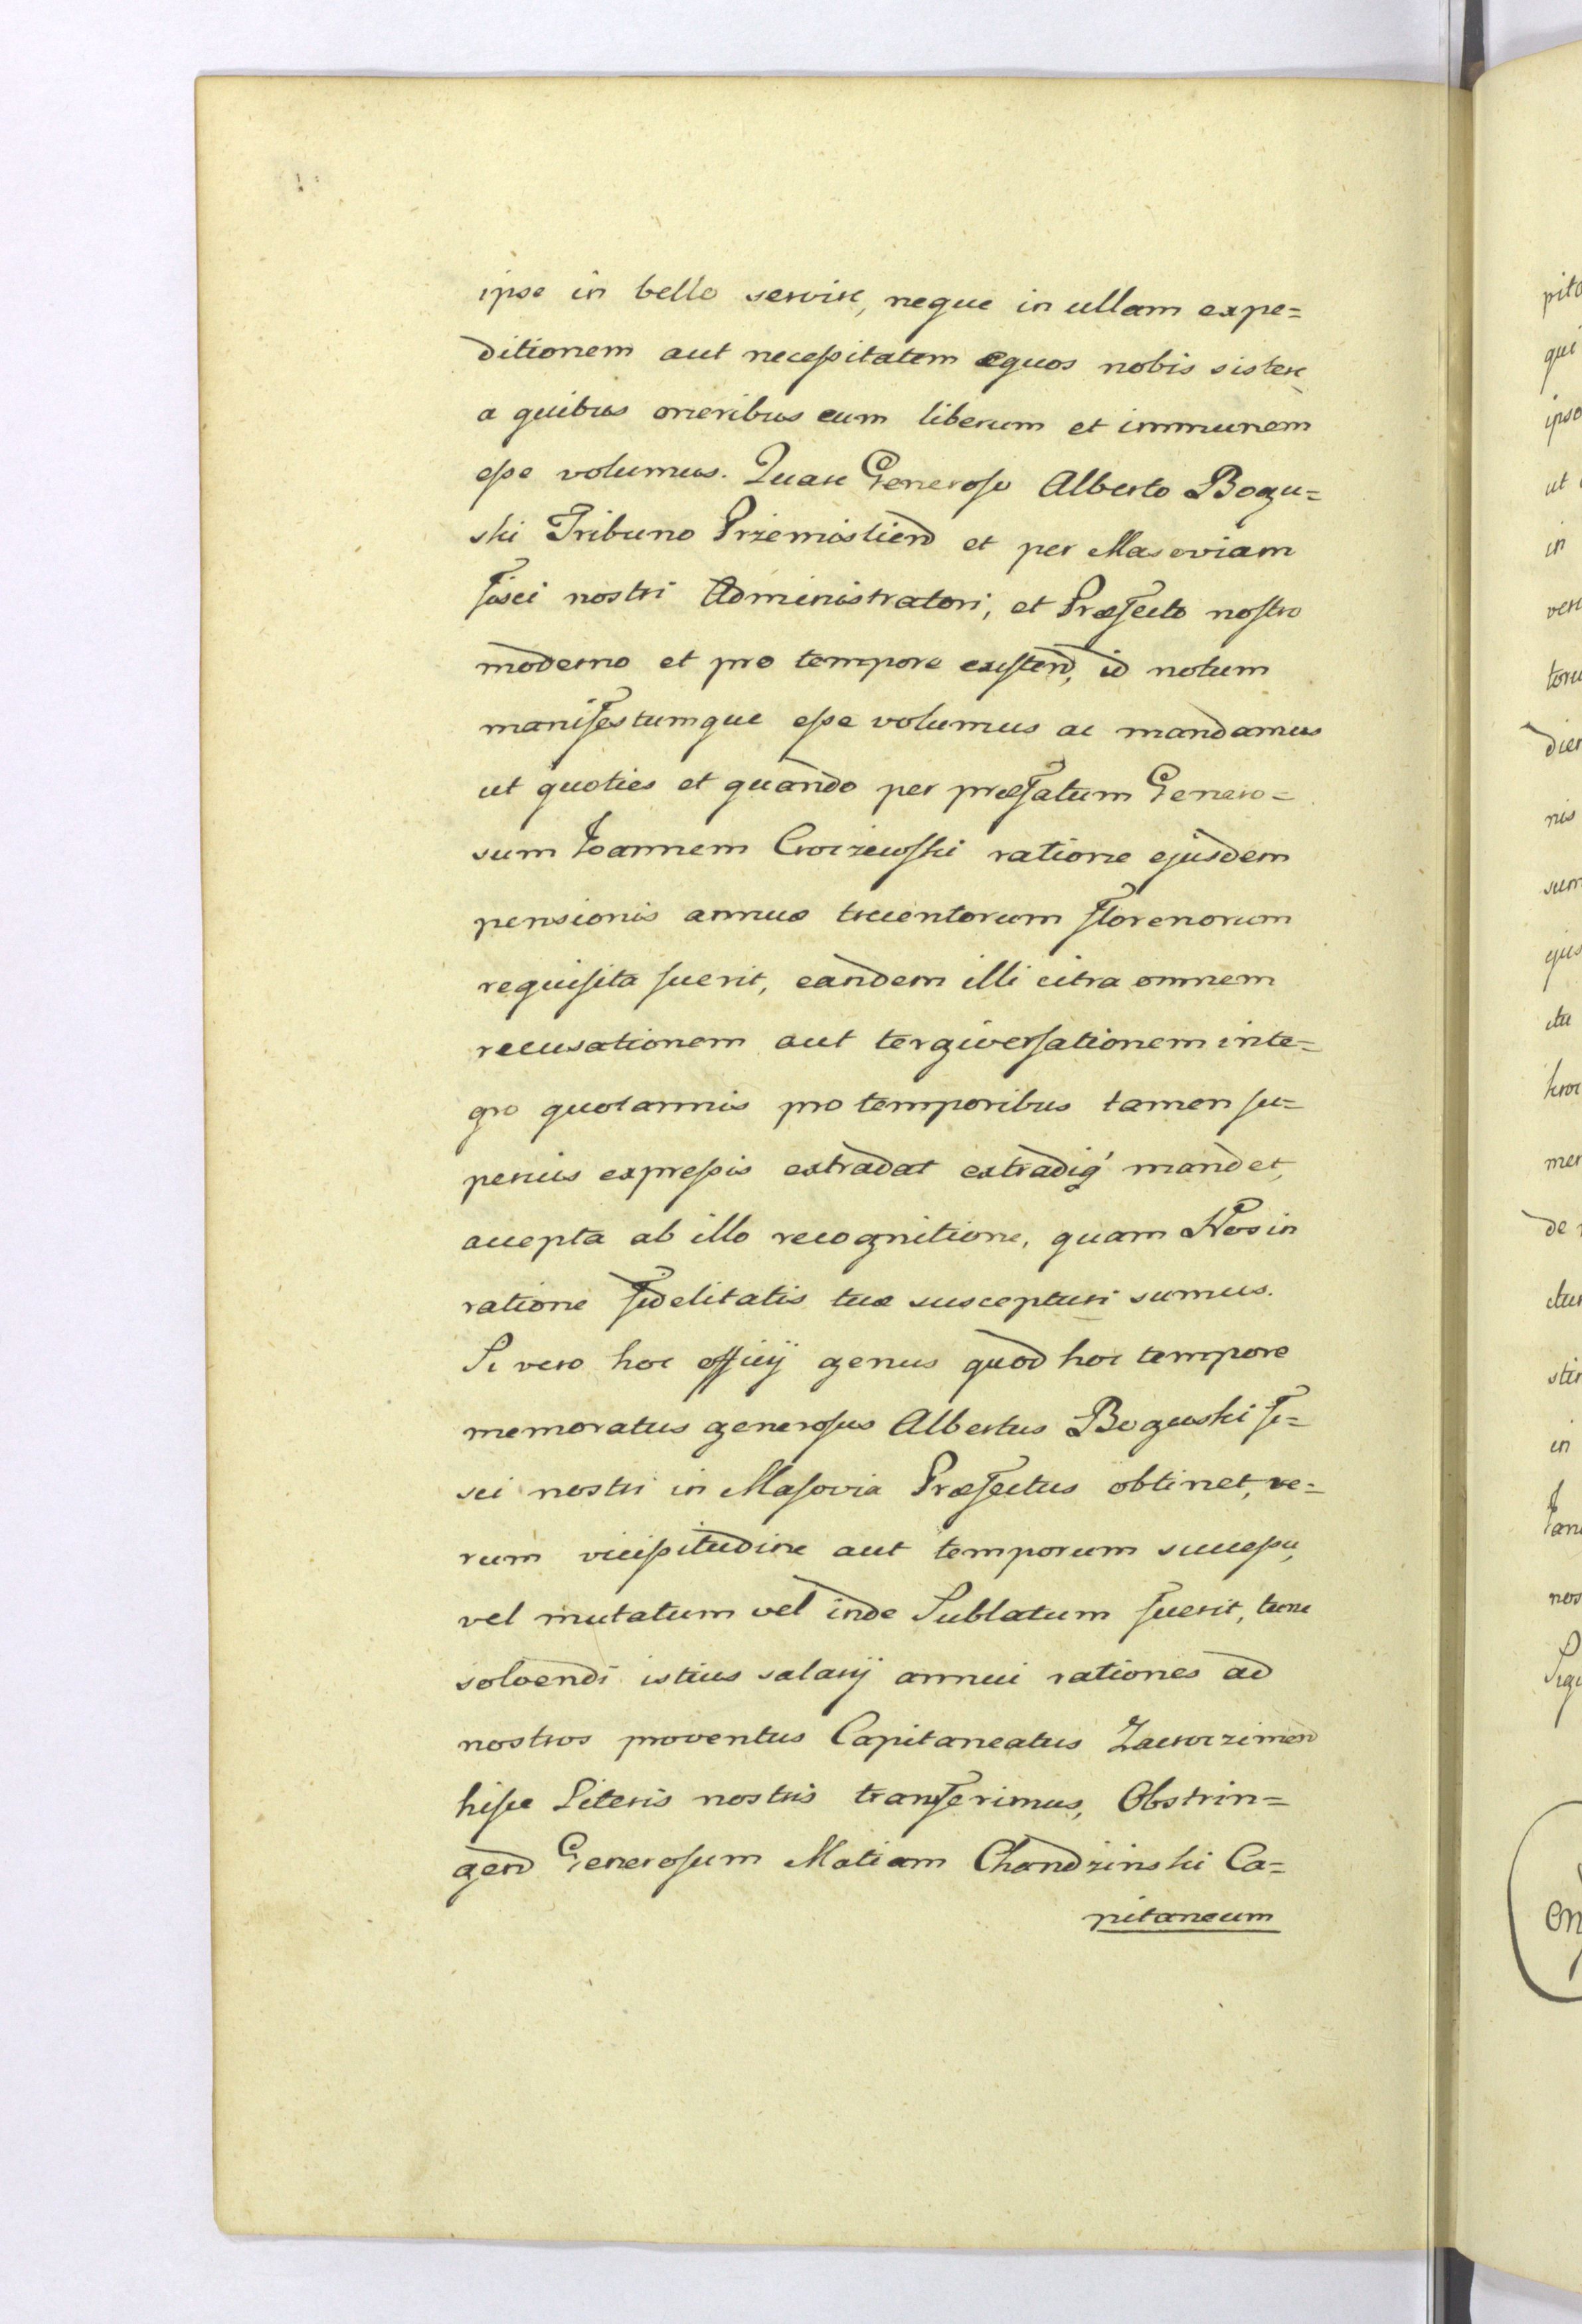 ipse in bello servire, neque in ullam expe=
ditionem aut necessitatem equos nobis sistere
a quibus oneribus eum liberum et immunem
esse volumus. Quare Generoso Alberto Bogu=
ski Tribuno Przemisliend et per Masoviam
fisci nostri Administratori, et Præfecto nostro
moderno et pro tempore existend, id notum
manifestumque esse volumus ac mandamus
ut quoties et quando per præfatum Genero=
sum Joannem Croczewski ratione ejusdem
pensionis annuæ trecentorum florenorum
requisita fuerit, eandem illi citra omnem
recusationem aut tergiversationem inte=
gro quotannis pro temporibus tamen su=
perius expressis extradat extradiq' mandet,
accepta ab illo recognitione, quam Nos in
ratione fidelitatis tuæ suscepturi sumus.
Si vero hoc officij genus quod hoc tempore
memoratus generosus Albertus Boguski fi=
sci nostri in Masovia Præfectus obtinet, re=
rum vicissitudine aut temporum successu,
vel mutatum vel inde Sublatum fuerit, tunc
solvendi istius salarij annui rationes ad
nostros proventus Capitaneatus Zacroczimend
hisce Literis nostris transferimus, Obstrin=
gend Generosum Matiam Chandzinski Ca=
pitaneum